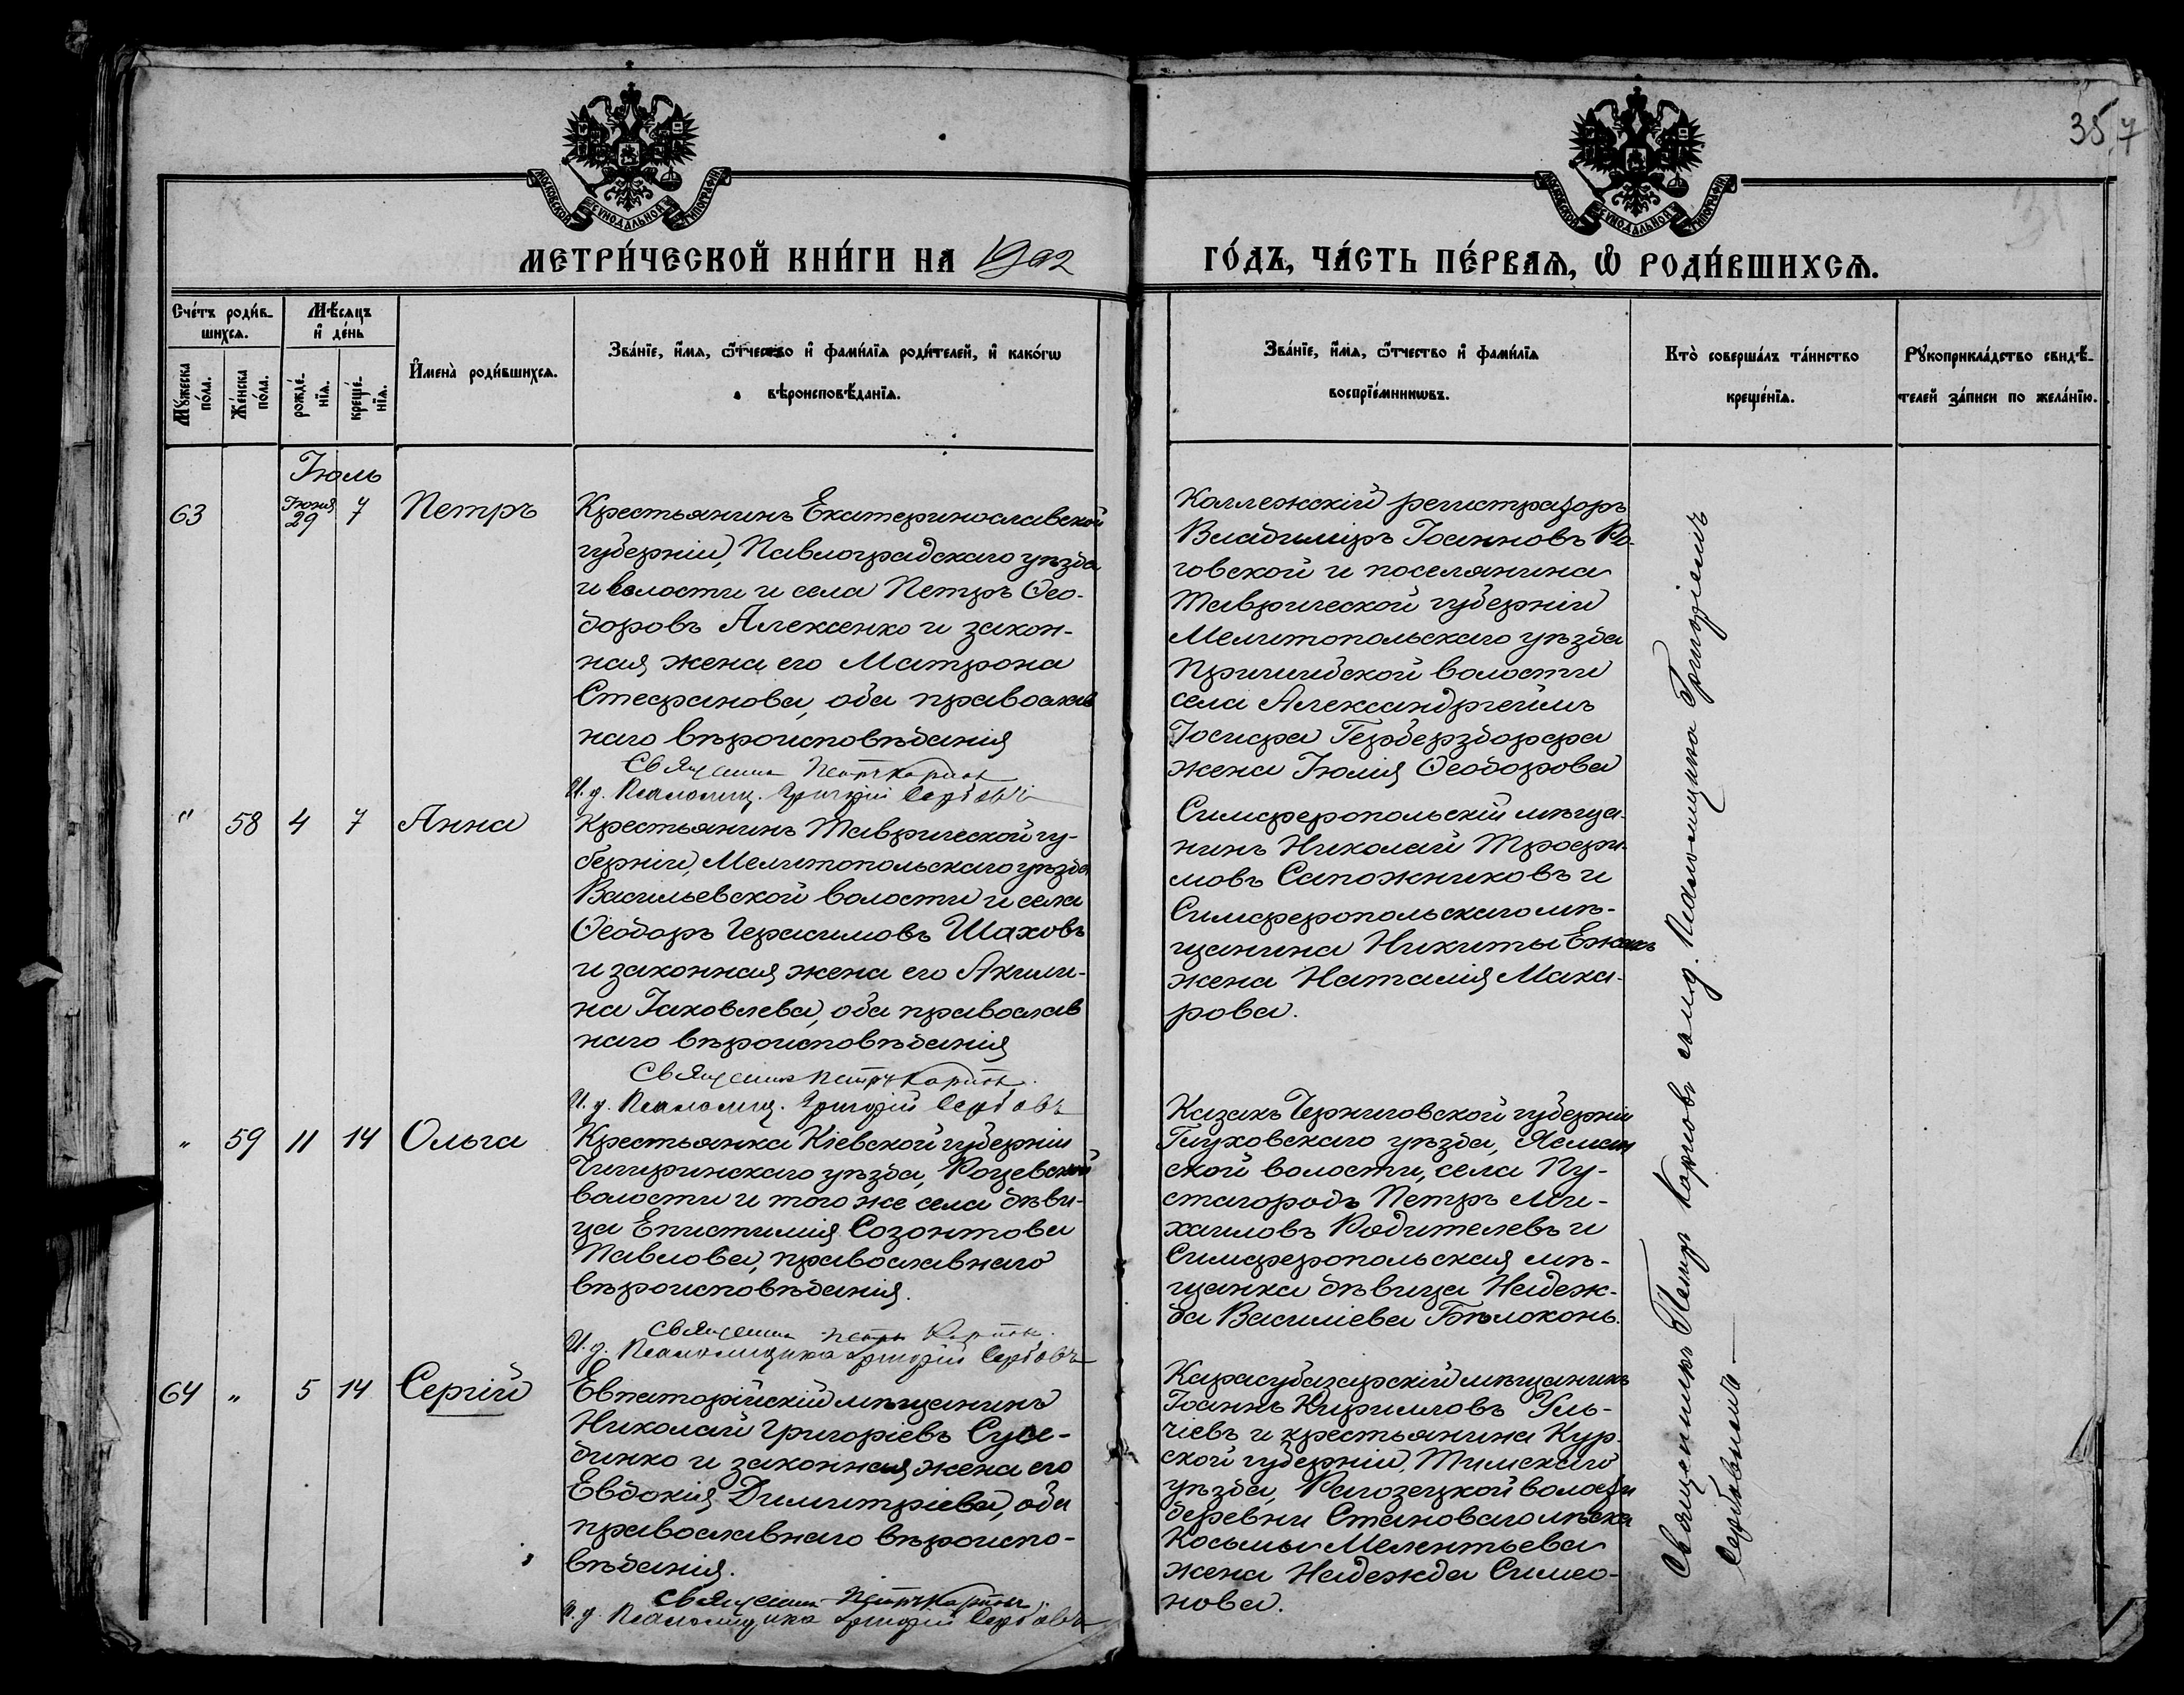 357
МОСКОВСКОЙ СѴНОДАЛЬНОЙ ТИПОГРАФІИ
МОСКОВСКОЙ СѴНОДАЛЬНОЙ ТИПОГРАФІИ
МЕТРИ́ЧЕСКОЙ КНИ́ГИ НА 1902
ГО́ДЪ, ЧА́СТЬ ПЕ́РВАѦ, Ѡ҆ РОДИ́ВШИХСѦ.
Сче́тъ роди́в-
шихсѧ.
Мꙋ́жеска по́ла.
Же́нска по́ла.
Мѣ́сѧцъ
и҆ де́нь
рожде́-
нїѧ.
креще́-
нїѧ.
И҆мена̀ роди́вшихсѧ.
Зва́нїе, и҆́мѧ, ѻ҆́тчество и҆ фами́лїѧ роди́телей, и҆ како́гѡ
вѣроисповѣ́данїѧ.
Зва́нїе, и҆́мѧ, ѻ҆́тчество и҆ фами́лїѧ
воспрїе́мникѡвъ.
Кто̀ соверша́лъ та́инство
креще́нїѧ.
Рꙋкоприкла́дство свидѣ́-
телей за́писи по жела́нїю.
Іюль
63
Іюня
29
7
Петръ
Крестьянинъ Екатеринославской
губерніи, Павлоградскаго уѣзда
и волости и села Петръ Ѳео-
доровъ Алексенко и закон-
ная жена его Матрона
Стефанова, оба православ
наго вѣроисповѣданія
Священникъ Петръ Карпов
И. д. Псаломщ. Григорій Сербовъ
Коллежскій регистраторъ
Владиміръ Іоанновъ Ро-
говской и поселянина
Таврической губерніи
Мелитопольскаго уѣзда
Пришибской волости
села Александргеймъ
Іосифа Гербердорфа
жена Юлія Ѳеодорова
" 58 4 7 Анна
Крестьянинъ Таврической гу-
берніи, Мелитопольскаго уѣзда
Васильевской волости и села
Ѳеодоръ Герасимовъ Шаховъ
и законная жена его Акили-
на Іаковлева, оба православ
наго вѣроисповѣданія
Священникъ Петръ Карпов
И. д. Псаломщ. Григорій Сербовъ
Симферопольскій мѣща-
нинъ Николай Трофи-
мовъ Сапожниковъ и
Симферопольскаго мѣ-
щанина Никиты
жена Наталія Мака-
рова.
" 59 11 14 Ольга
Крестьянка Кіевской губерніи
Чигиринскаго уѣзда,
волости и того же села дѣви-
ца Епистимія Созонтова
Павлова, православнаго
вѣроисповѣданія.
Священникъ Петръ Карпов.
И. д. Псаломщика Григорій Сербовъ
Казакъ Черниговской губерніи
Глуховскаго уѣзда, Ясман
ской волости, села Пу-
стагородъ Петръ Ми-
хаиловъ Родителевъ и
Симферопольская мѣ-
щанка дѣвица Надеж-
да Василіева Бѣлоконь.
64 " 5 14 Сергій
Евпаторійскій мѣщанинъ
Николай Григоріевъ Суле-
динко и законная жена его
Евдокія Димитріева, оба
православнаго вѣроиспо-
вѣданія.
Священникъ Петръ Карпов
И. д. Псаломщика Григорій Сербовъ
Карасубазарскій мѣщанинъ
Іоаннъ Кирилловъ Уль-
чіевъ и крестьянина Кур-
ской губерніи, Тимскаго
уѣзда, Рагозецкой волости
деревни Становаго
Косьмы Мелентьева
жена Надежда Симео-
нова.
Священникъ Петръ Карповъ съ и. д. Псаломщика Григоріемъ
Сербовымъ